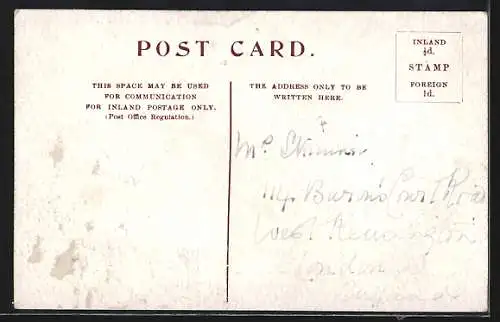 POST CARD.
THIS SPACE MAY BE USED
FOR COMMUNICATION
FOR INLAND POSTAGE ONLY.
(Post Office Regulation.)
THE ADDRESS ONLY TO BE
WRITTEN HERE.
INLAND
½d.
STAMP
FOREIGN
1d.
West Kensington
London
England